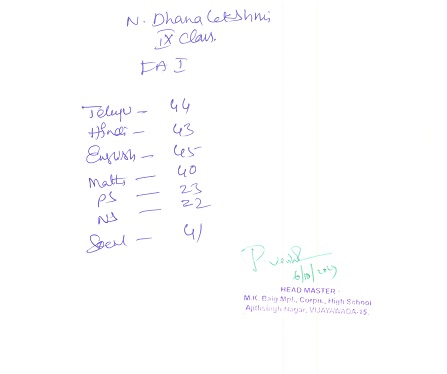 N. Dhana Lekshmi
IX Class.
FA I
Telugu - 44
Hindi - 43
English - 45
Maths - 40
PS - 23
NS - 22
Social - 41
HEAD MASTER
M.K. Baig Mpl., Corpn., High School
Ajithsingh Nagar, VIJAYAWADA-15.